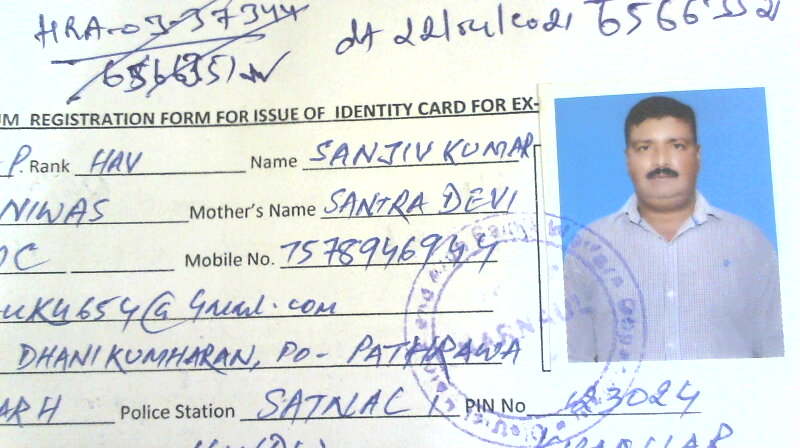 HRA-03-37344 dt 22/04/2021 6566351
6566351
UM REGISTRATION FORM FOR ISSUE OF IDENTITY CARD FOR EX-
P. Rank HAV Name SANJIV KUMAR
NIWAS Mother's Name SANTRA DEVI
OC Mobile No. 7578946944
UK4654@Gmail.com
DHANI KUMHARAN, PO- PATHRAWA
ARH Police Station SATNALI PIN No 123024